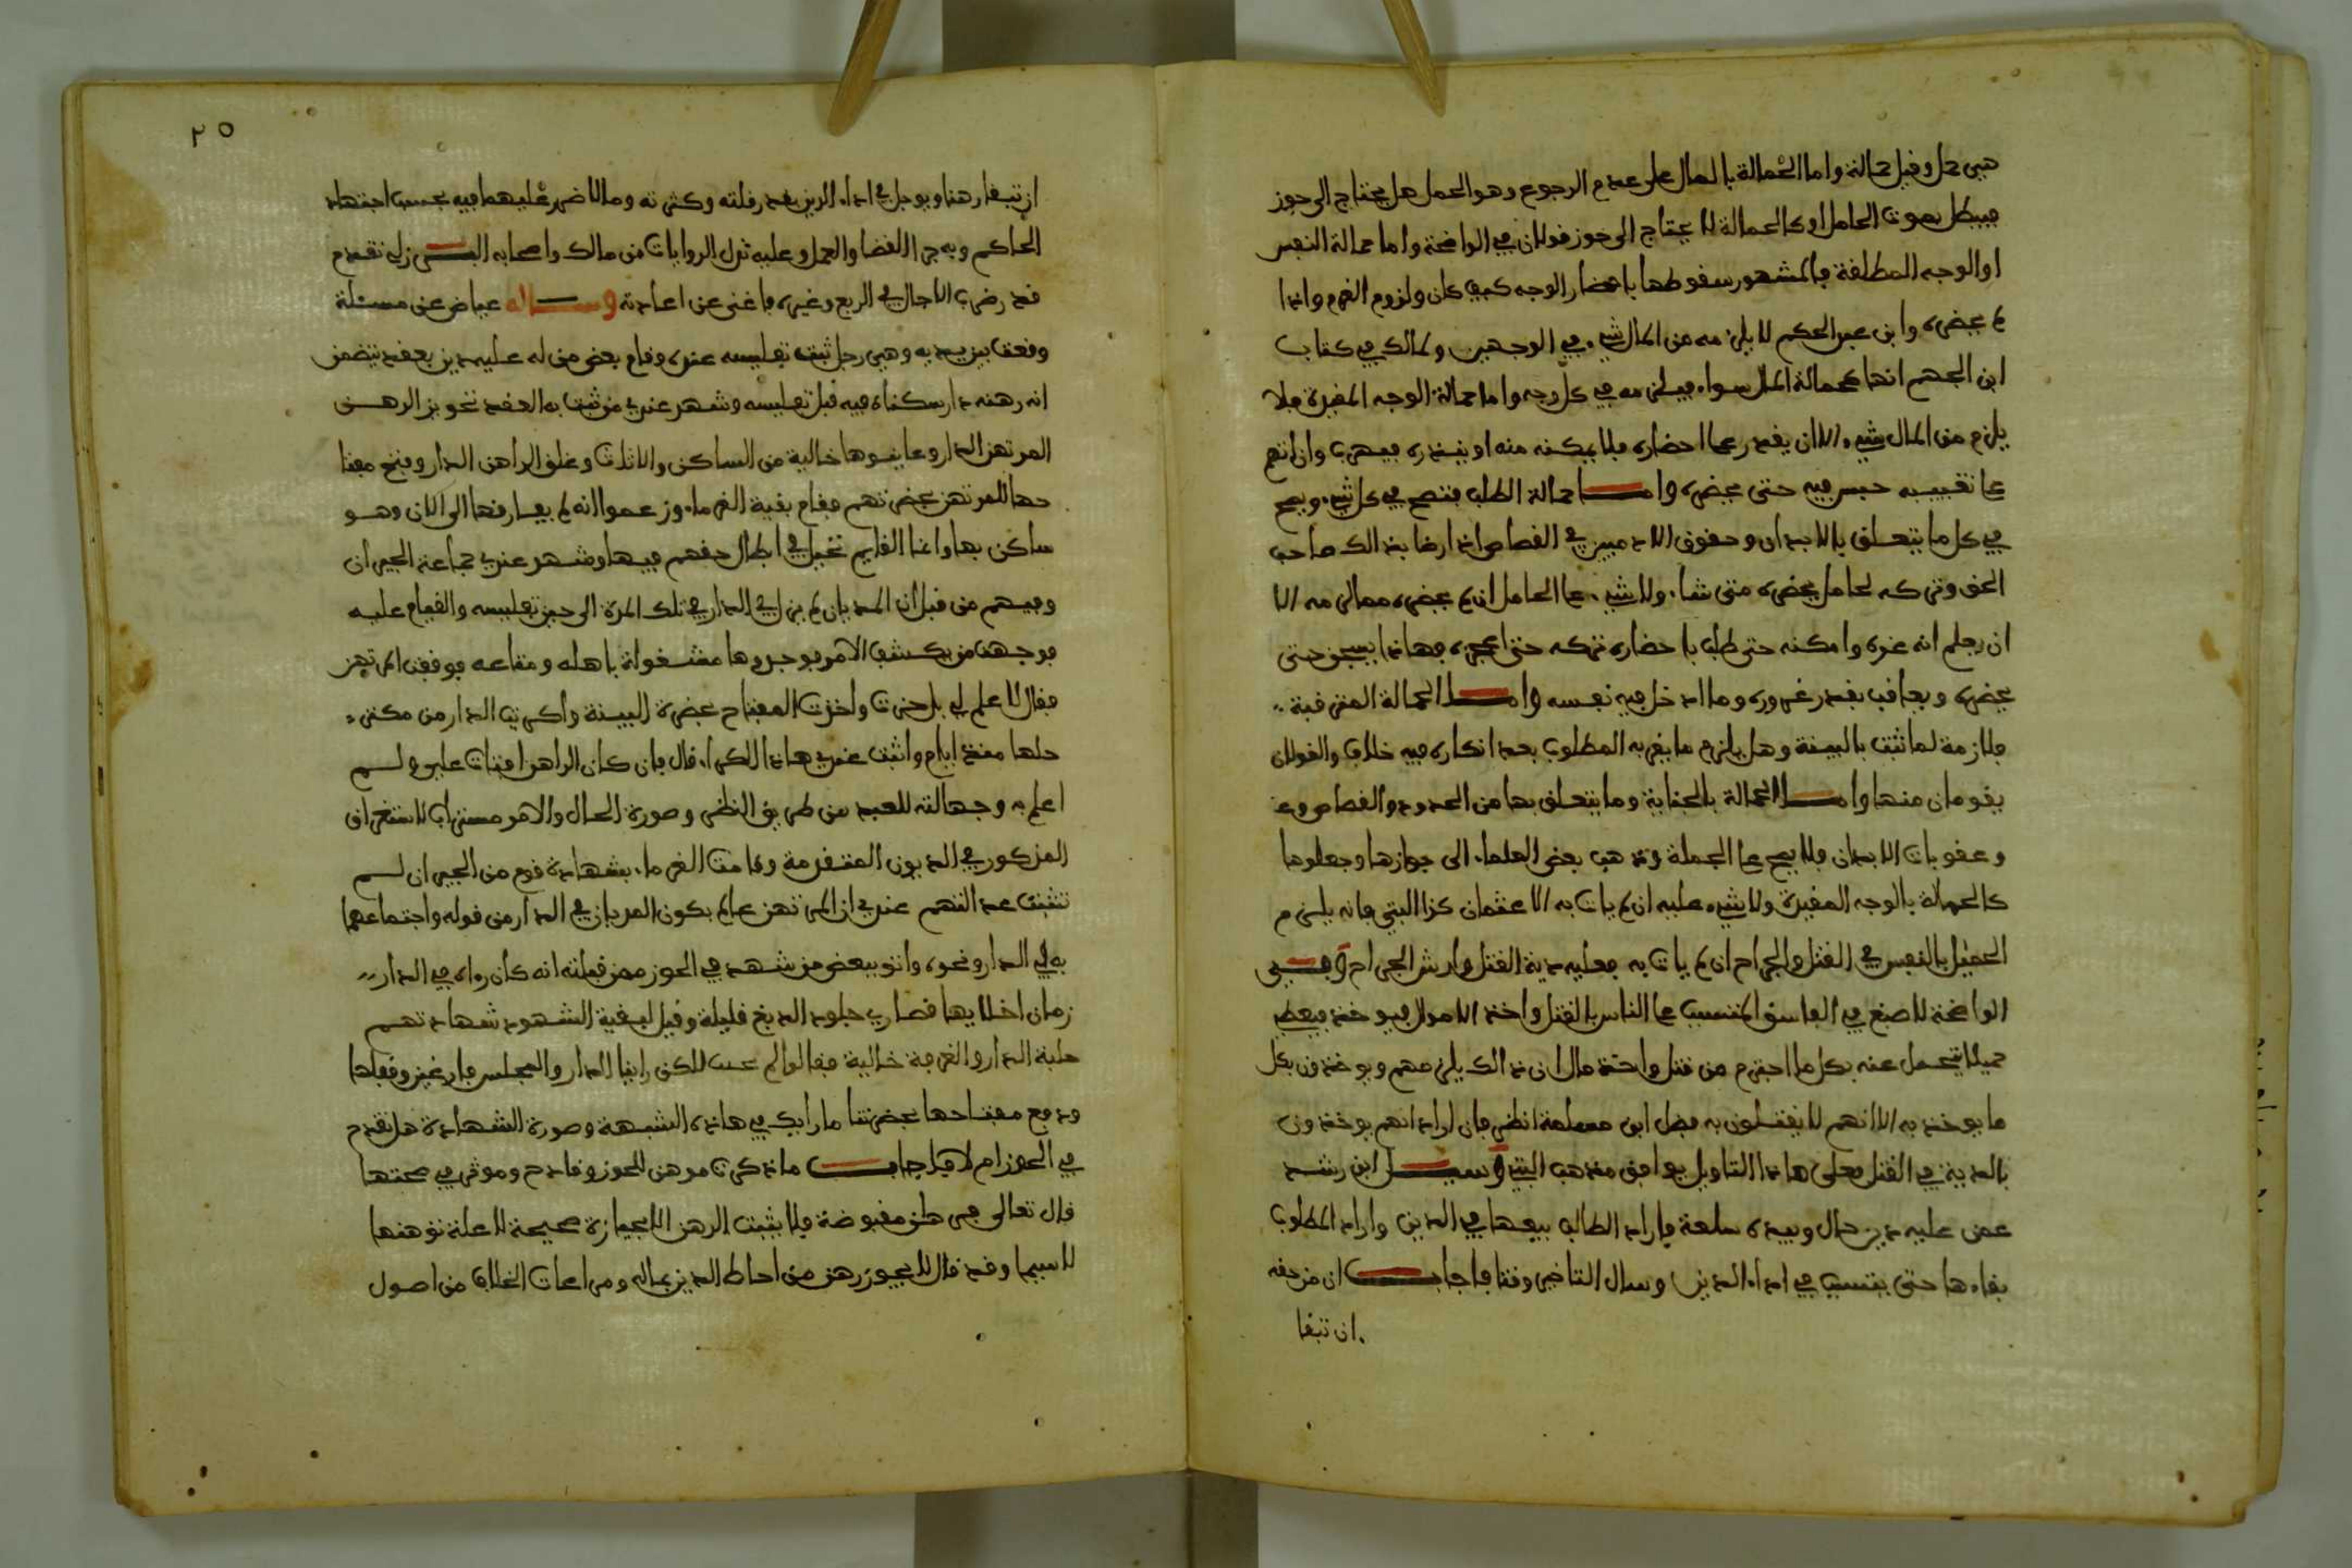 هي حمل وقيل حمالة واما الحمالة بالمال على عدم الرجوع وهو الحمل هل يحتاج الى حوز
فيبطل بموت الحامل او كالحمالة لا يحتاج الى حوز قولان في الواضحة واما حمالة النفس
او الوجه المطلقة فالمشهور سقوطها باحضار الوجه كيف كان ولزوم الغرم واذا
لم يحضره وابن عبد الحكم لا يلزمه من المال شيء في الوجهين ولمالك في كتاب
ابن الجهم انها كحمالة المال سواء فيلزمه في كل وجه واما حمالة الوجه المقيدة فلا
يلزم من المال شيء الا ان يقدر على احضاره فلا يمكنه منه او ينذره فيهرب وان اتهم
على تغييبه حبس فيه حتى يحضره واما حمالة الطلب فتصح في كل شيء ويصح
في كل ما يتعلق بالابدان وحقوق الادميين في القصاص اذا رضا بذالك صاحب
الحق وتركه لحامل يحضره متى شاء ولا شيء على الحامل ان لم يحضره مما لزمه الا
ان يعلم انه غره وامكنه حتى طلب باحضاره تركه حتى اعجزه فهاذا يسجن حتى
يحضره ويعاقب بقدر غروره وما ادخل فيه نفسه واما الحمالة المترقبة
فلازمة لما ثبت بالبينة وهل يلزم ما يقر به المطلوب بعد انكاره فيه خلاف والقولان
يقومان منها واما الحمالة بالجناية وما يتعلق بها من الحدود والقصاص
وعقوبات الابدان فلا يصح على الجملة وذهب بعض العلماء الى جوازها وجعلوها
كالحمالة بالوجه المقيدة ولا شيء عليه ان لم يات به الا عثمان كذا البتي فانه يلزم
الحميل بالنفس في القتل والجراح ان لم يات به فعليه دية القتل وارش الجراح وفي
الواضحة لاصبغ في الفاسق المتسبب على الناس بالقتل واخذ الاموال فيوخذ فيعطي
حميلا يتحمل عنه بكل ما اجترم من قتل واخذ مال ان ذالك يلزمهم ويوخذون بكل
ما يوخذ به الا انهم لا يقتلون به فضل ابن مسلمة انظر فان اراد انهم يوخذون
بالدية في القتل فعلى هاذا التاويل يوافق مذهب البتي وسيل ابن رشد
عمن عليه دين حال وبيده سلعة فاراد الطالب بيعها في الدين واراد المطلوب
بقاءها حتى يتسبب في اداء الدين وسال التاخير وقتا فاجاب ان من حقه
ان تبقا
٢٥
ان تبقا رهنا ويوجل في اداء الدين بقدر قلته وكثرته وما لا ضرر عليهما فيه بحسب اجتهاد
الحاكم وبه جرا القضا والعمل وعليه تدل الروايات من مالك واصحابه البرزلي تقدم
قدر ضرب الاجال في الربع وغيره فاغنى عن اعادته وساله عياض عن مسئلة
وقعت بين يديه وهي رجل ثبت تفليسه عنده وقام بعض من له عليه دين بعقد يتضمن
انه رهنه دار سكناه فيه قبل تفليسه وشهد عندي من ثبت به العقد تحويز الرهن
المرتهن الدار وعاينوها خالية من الساكن والاثاث وغلق الراهن الدار ودفع مفتا
حها للمرتهن بحضرتهم فقام بقية الغرماء وزعموا انه لم يفارقها الى الان وهو
ساكن بها وانما القايم تحيل في ابطال حقهم فيها وشهد عندي جماعة الجيران
وفيهم من قبل ان المديان لم يزل في الدار في تلك المدة الى حين تفليسه والقيام عليه
فوجهت من يكشف الامر فوجدوها مشغولة باهله ومتاعه فوقفت المرتهن
فقال لا علم لي بل حزت واخذت المفتاح بحضرة البينة واكريت الدار من مكتر
حلها منذ ايام واثبت عندي هاذا الكراء قال فان كان الراهن افتات علي ولم
اعلم به وجهالته للعبد من طريق النظر وصورة الحال والامر مستراب لاستغراق
المذكور في الديون المتقدمة وقامت الغرماء بشهادة قوم من الجيران لم
تثبت عدالتهم عندي ان المرتهن عالم بكون المديان في الدار من قوله واجتماعهما
به في الدار ونحوه واتو ببعض من شهد في الحوز ممن قبلته انه كان رءاه في الدار
زمان اخلايها قصاري جلود الدبغ قليلة وقيل لبقية الشهود شهادتهم
حلية الدار والغرفة خالية فقالوا لم نحسب لكن راينا الدار والمجلس فارغين وقفلها
ودفع مفتاحها بحضرتنا ما رايك في هاذه الشبهة وصورة الشهادة هل تقدح
في الحوز ام لا فاجاب ما ذكرت موهن للحوز وقادح وموثر في صحتها
قال تعالى فرهان مقبوضة فلا يثبت الرهن الا بحيازة صحيحة لا علة توهنها
لا سيما وقد قال لا يجوز رهن من احاط الدين بماله ومراعات الخلاف من اصول